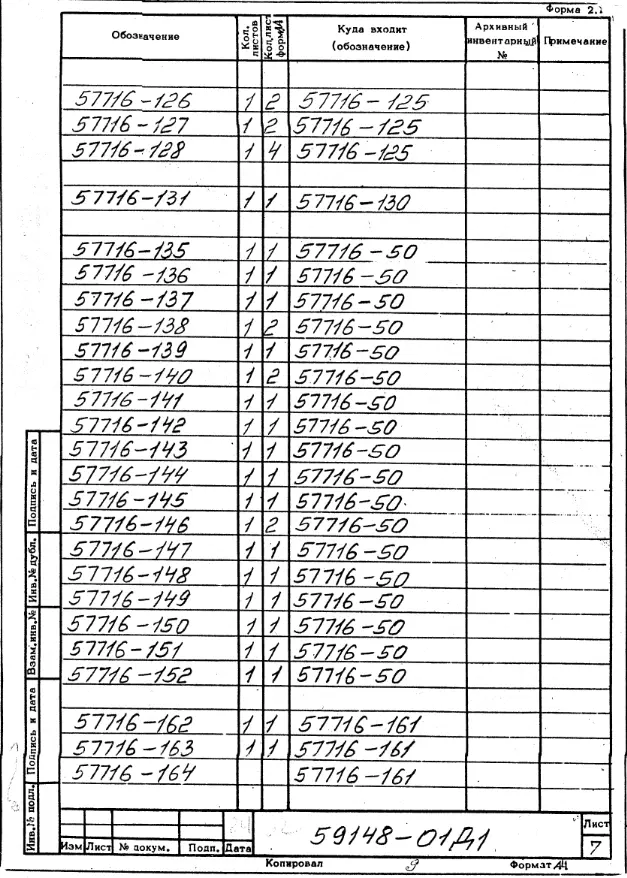 Форма 2.1
Обозначение Кол. листов Кол. лист форм. А4 Куда входит (обозначение) Архивный инвентарный № Примечание
57716-126 1 2 57716-125
57716-127 1 2 57716-125
57716-128 1 4 57716-125
57716-131 1 1 57716-130
57716-135 1 1 57716-50
57716-136 1 1 57716-50
57716-137 1 1 57716-50
57716-138 1 2 57716-50
57716-139 1 1 57716-50
57716-140 1 2 57716-50
57716-141 1 1 57716-50
57716-142 1 1 57716-50
57716-143 1 1 57716-50
57716-144 1 1 57716-50
57716-145 1 1 57716-50
57716-146 1 2 57716-50
57716-147 1 1 57716-50
57716-148 1 1 57716-50
57716-149 1 1 57716-50
57716-150 1 1 57716-50
57716-151 1 1 57716-50
57716-152 1 1 57716-50
57716-162 1 1 57716-161
57716-163 1 1 57716-161
57716-164 57716-161
Подпись и дата
Инв.№ дубл.
Взам.инв.№
Подпись и дата
Инв.№ подл.
59148-01Д1
Лист
7
Изм Лист № докум. Подп. Дата
Копировал 9 Формат А4